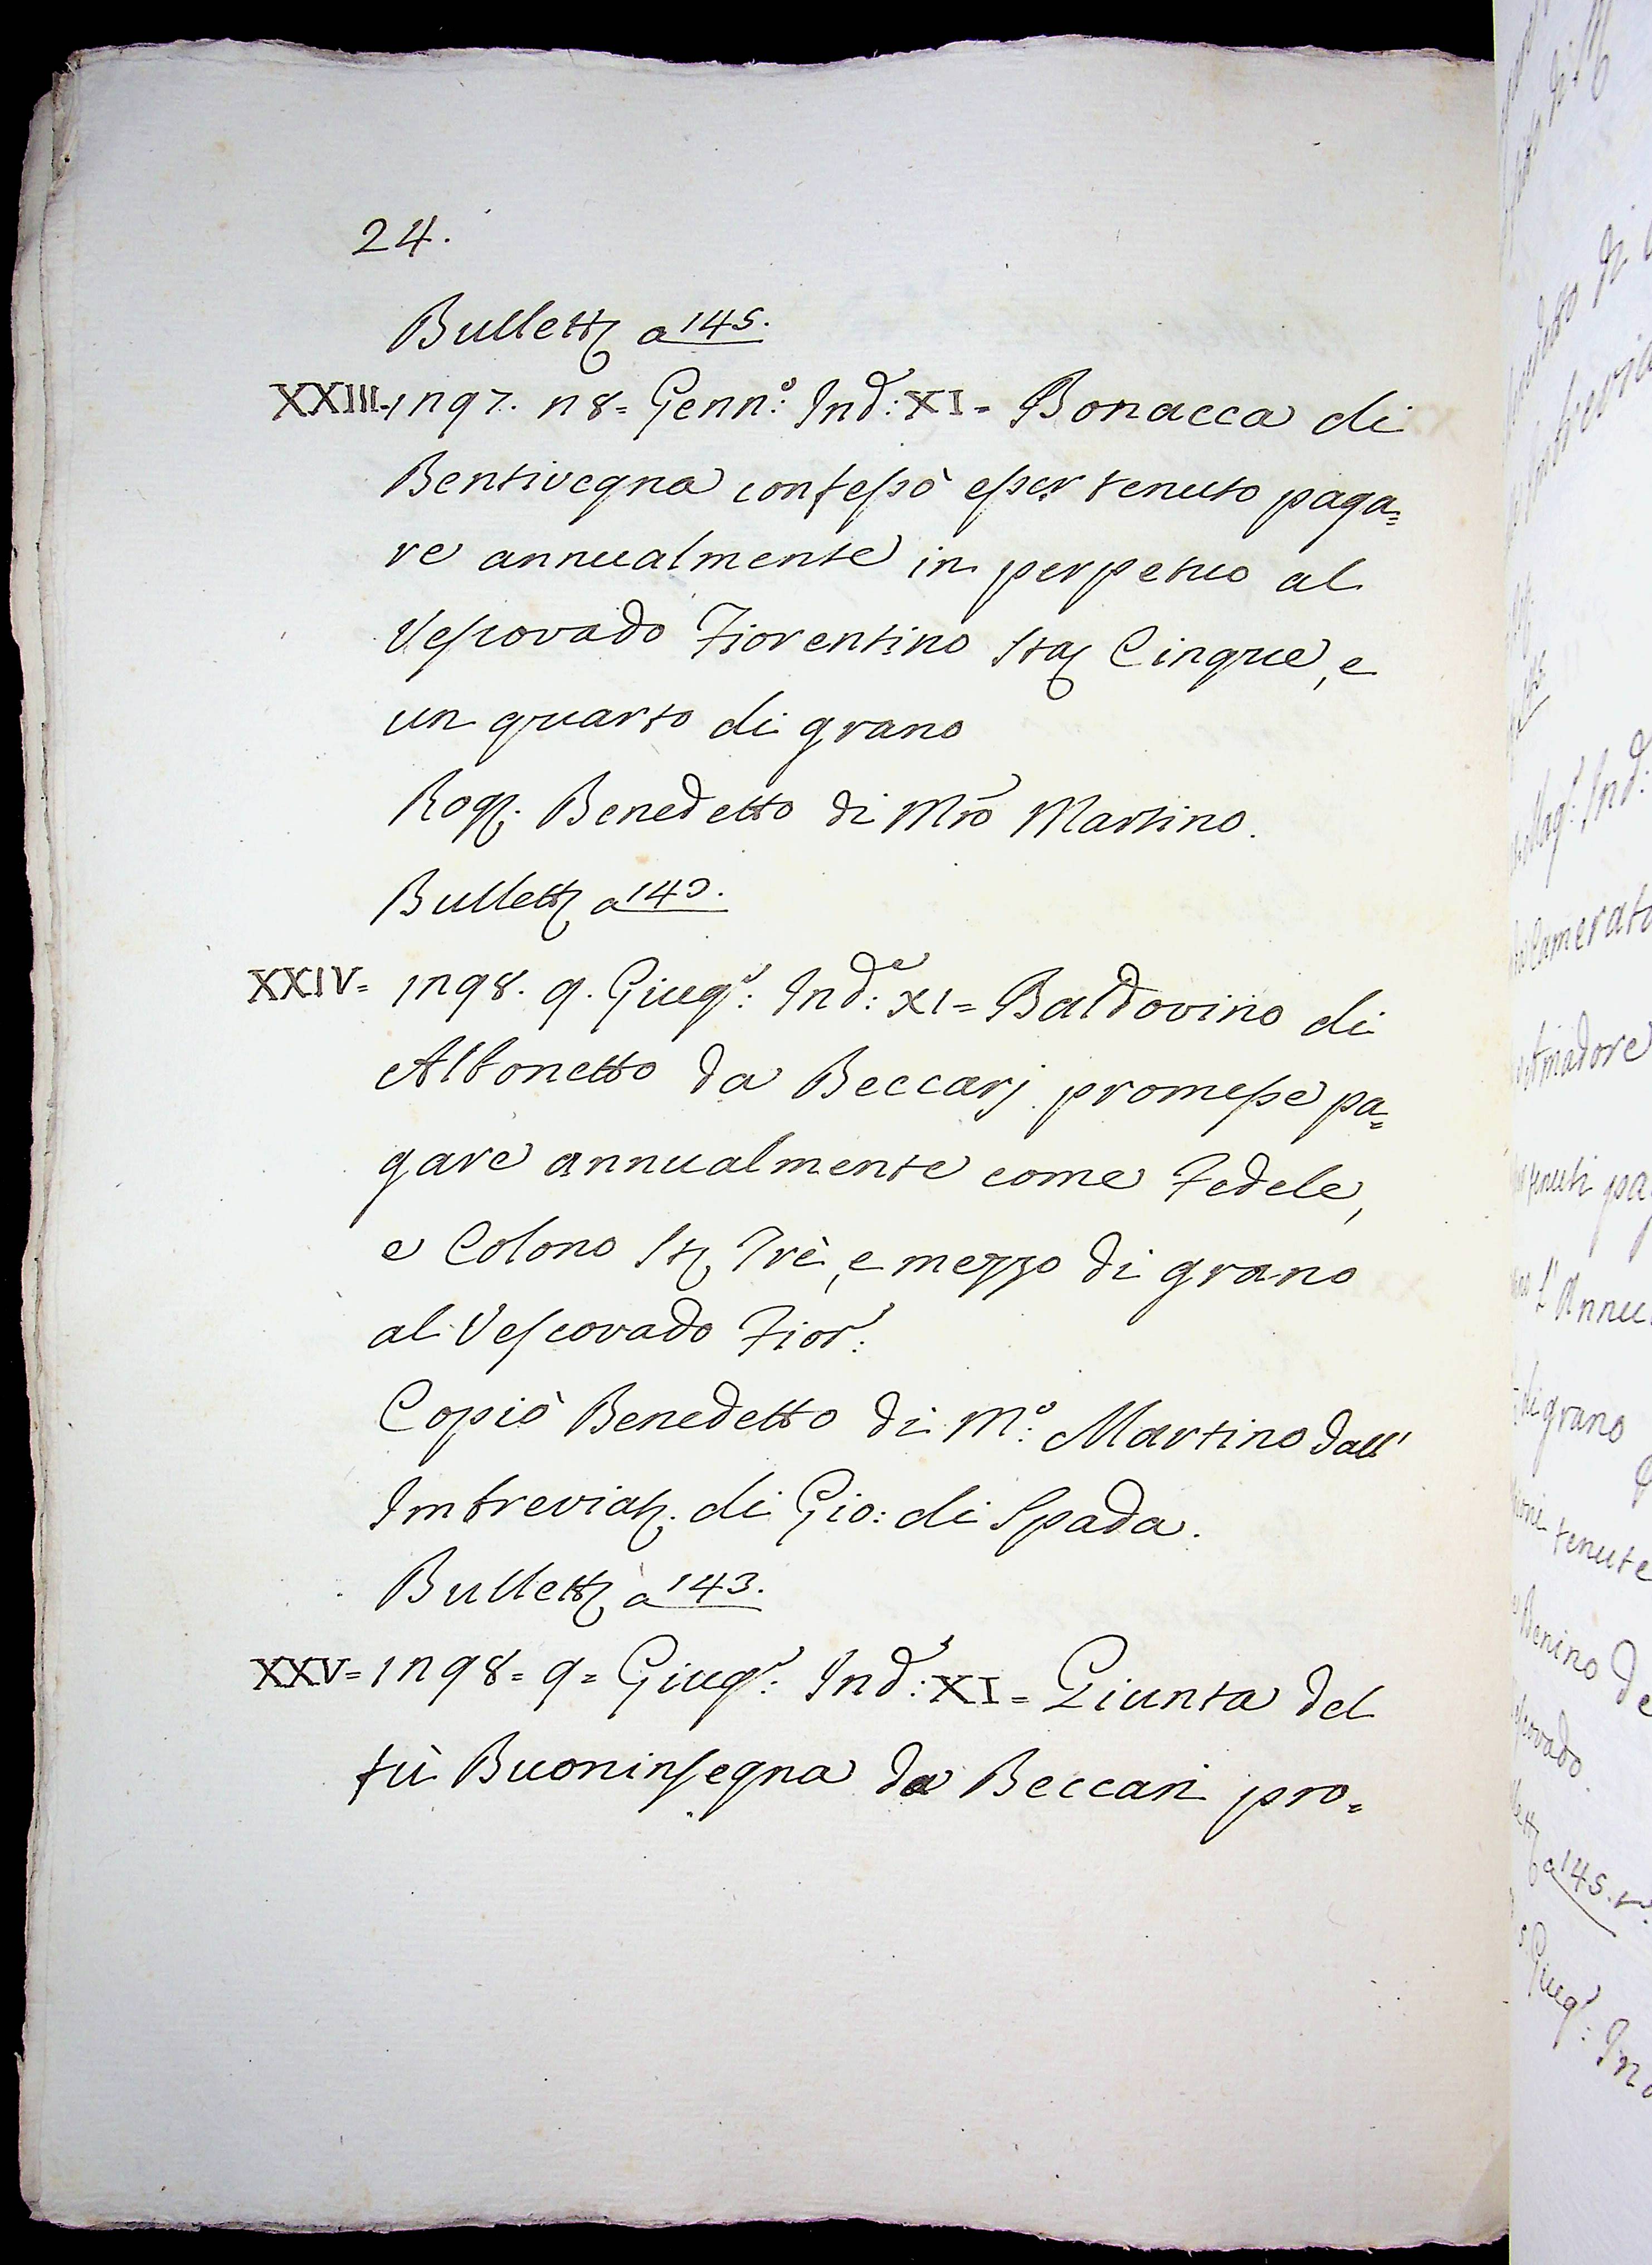 24.
Bullett a 145.
XXIII. 1297. 28 = Genn.º Ind: XI = Bonacca di
Bentivegna confessò esser tenuto paga=
re annualmente in perpetuo al
Vescovado Fiorentino Sta Cinque, e
un quarto di grano
Rog. Benedetto di Mrõ Martino.
Bullett a 143.
XXIV = 1298. 9. Giugº: Indᵉ: XI = Baldovino di
Albonetto da Beccarj promesse pa=
gare annualmente come Fedele,
e Colono St Trè, e mezzo di grano
al Vescovado Fiorº:
Copiò Benedetto di Mº: Martino dall'
Imbreviat. di Gio: di Spada.
Bullett a 143.
XXV = 1298 = 9 = Giugº: Ind: XI = Giunta del
fù Buoninsegna da Beccari pro=